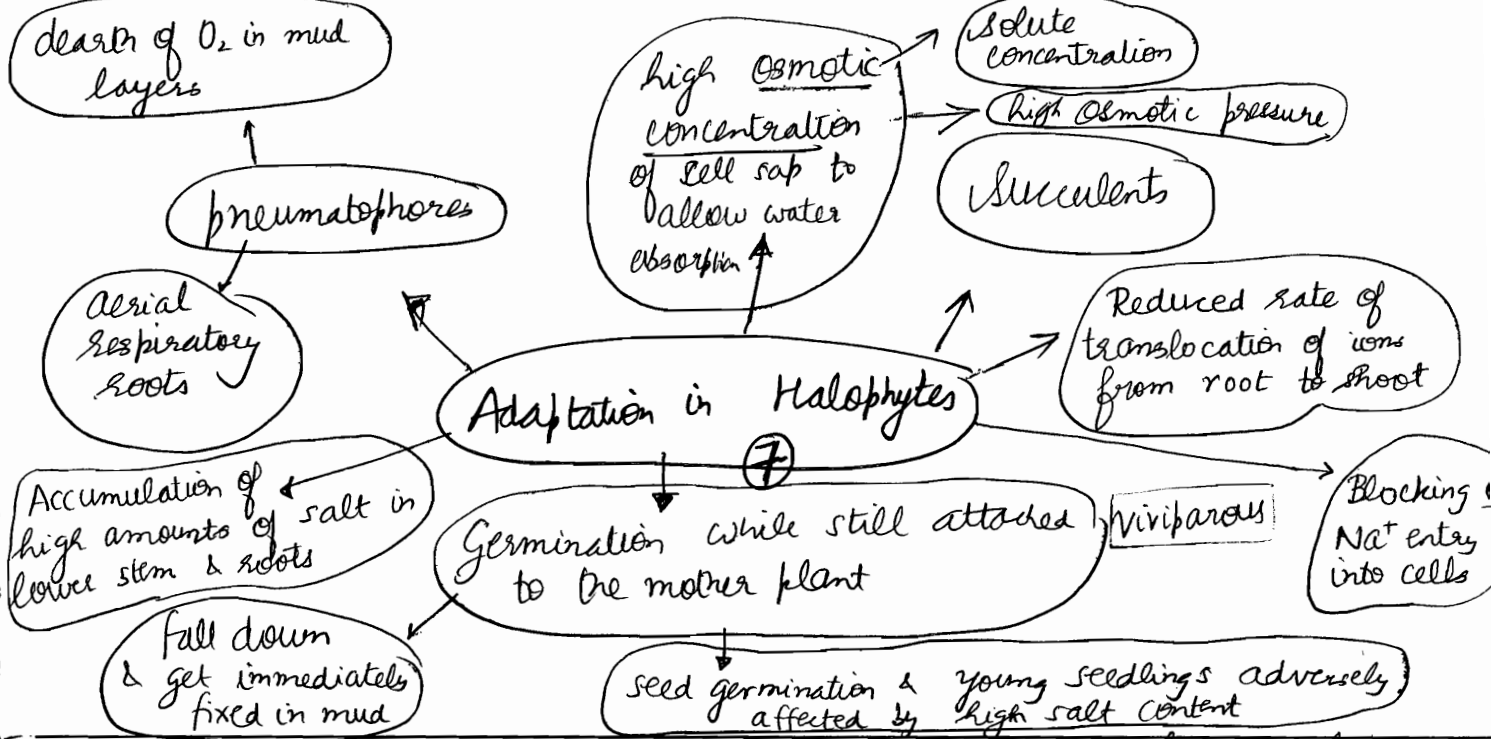 dearth of O₂ in mud
layers
pneumatophores
aerial
respiratory
roots
high osmotic
concentration
of cell sap to
allow water
absorption
solute
concentration
high osmotic pressure
Succulents
Reduced rate of
translocation of ions
from root to shoot
Adaptation in Halophytes
7
Accumulation of
high amounts of salt in
lower stem & roots
Germination while still attached
to the mother plant
viviparous
Blocking
Na⁺ entry
into cells
fall down
& get immediately
fixed in mud
seed germination & young seedlings adversely
affected by high salt content